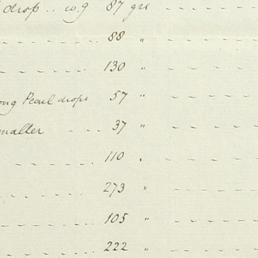 drop .. wg 87 grs
88 "
130 "
ong Pearl drops 57 "
smaller 37 "
110 "
273 "
105 "
222 "